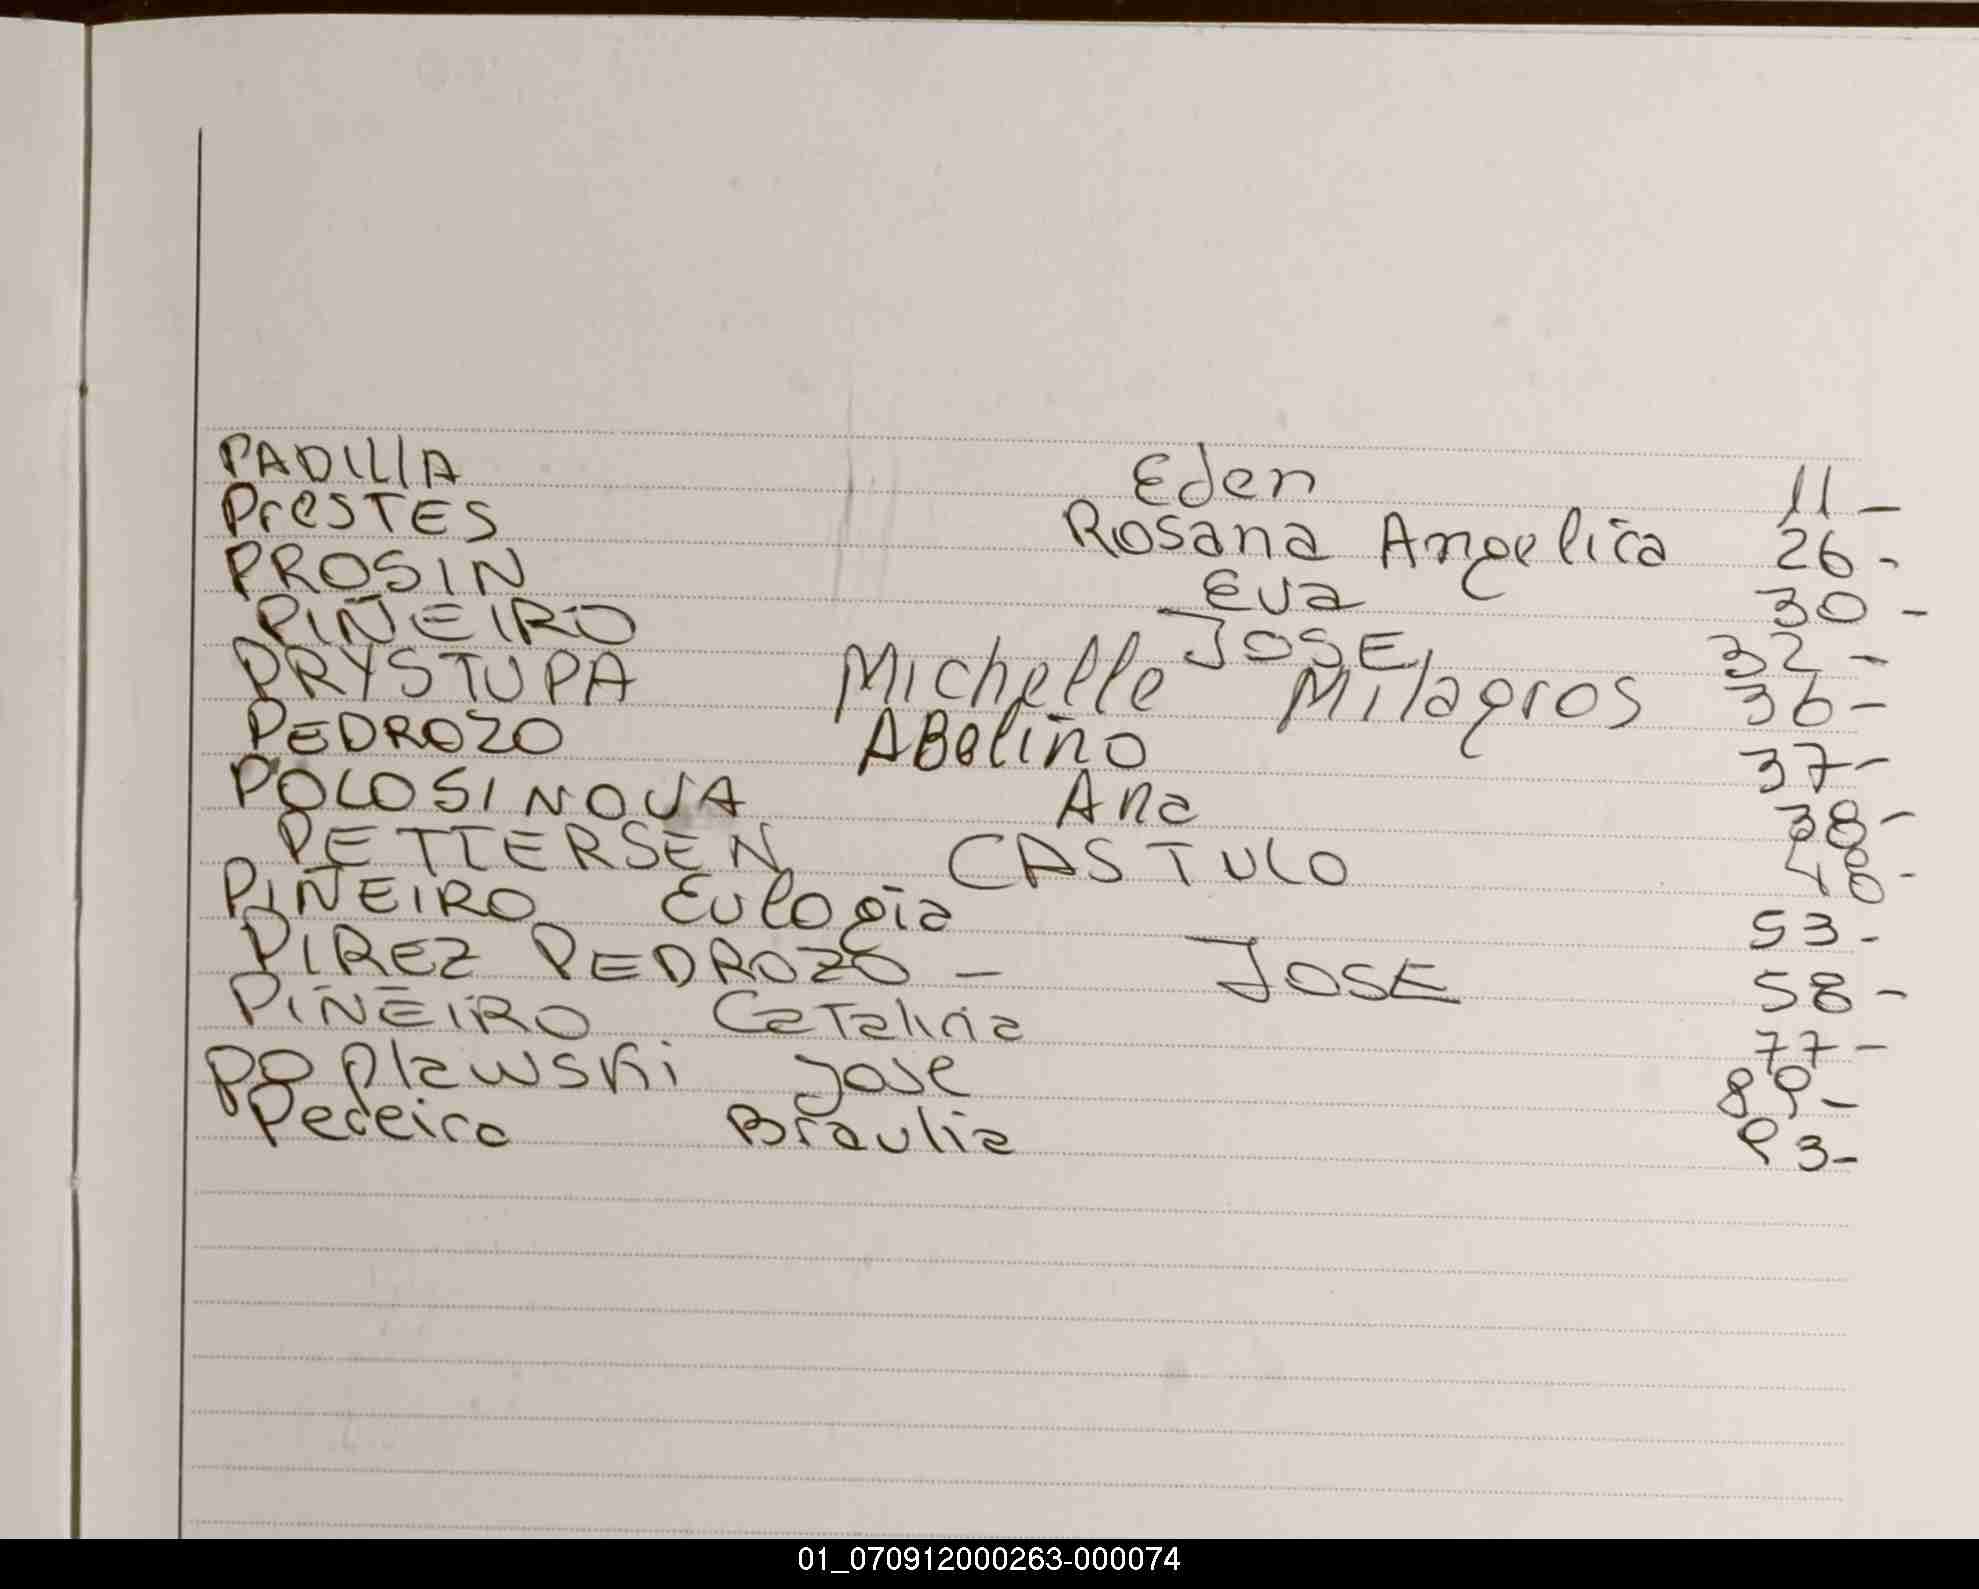 PADILLA Eden 11-
PresTES Rosana Angelica 26-
PROSIN Eva 30-
PIÑEIRO JOSE 32-
PRYSTUPA Michelle Milagros 36-
PEDROZO ABeliño 37-
POLOSINOVA Ana 38-
PETTERSEN CASTULO 48-
PIÑEIRO Eulogia 53-
PIREZ PEDROZO - JOSE 58-
PIÑEIRO Catalina 77-
poplawski Jose 89-
Pereira Braulia 93-
01_070912000263-000074